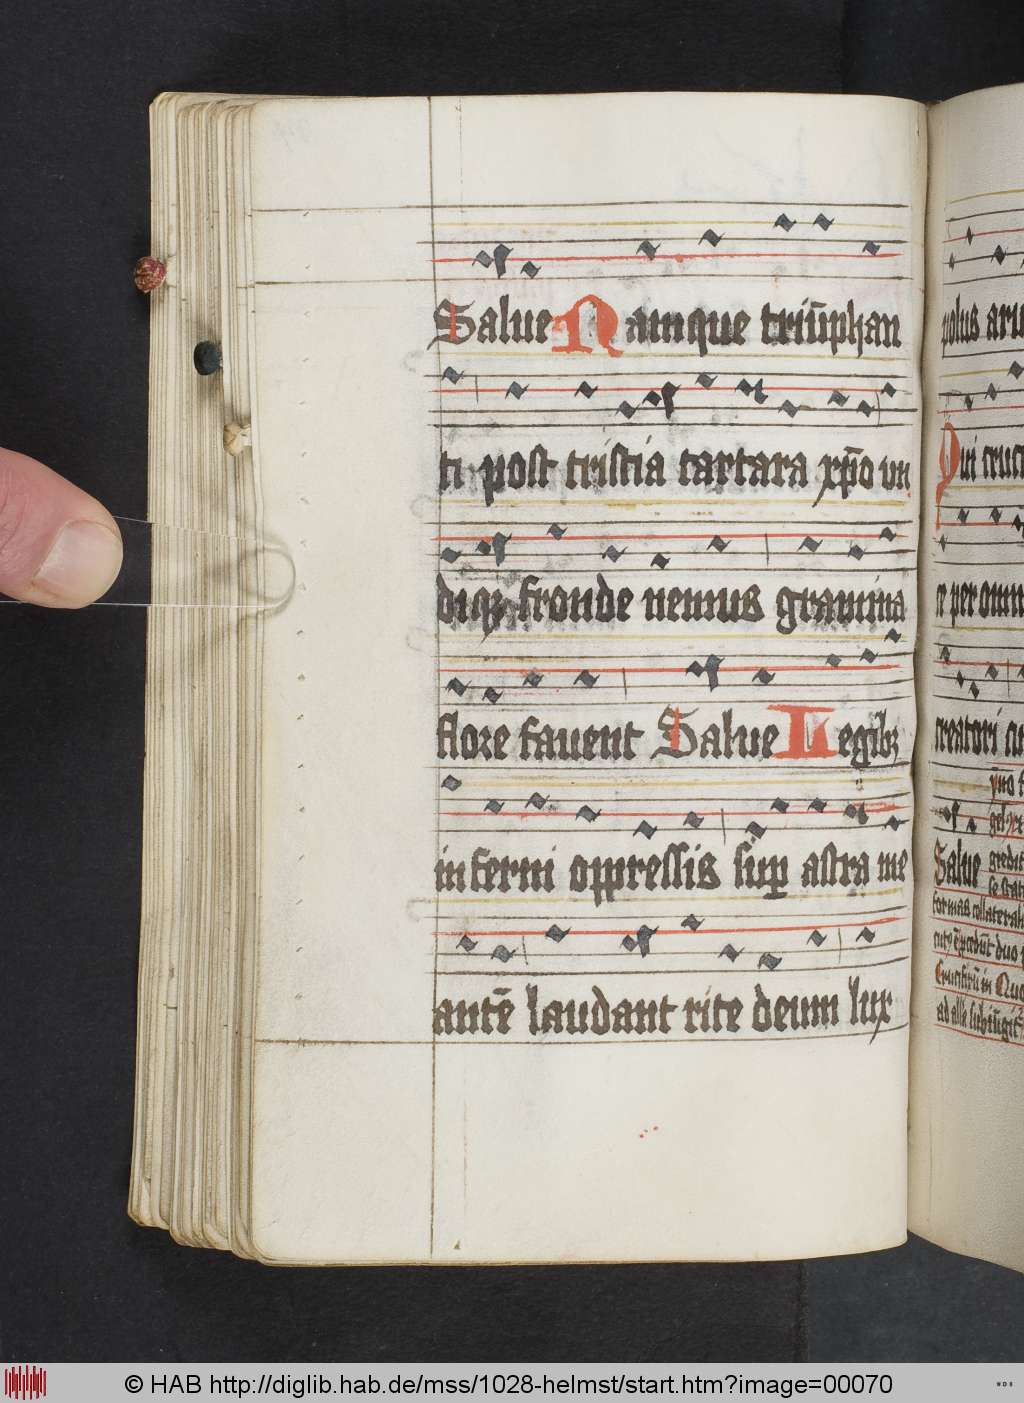 Salue Namque triūphan
ti post tristia tartara xp̄o vn
diqꝫ fronde nemus gramina
flore fauent Salue Legibꝫ
inferni oppressis suꝑ astra me
antē laudant rite deum lux
polus aru
Qui cruci
re per omn
creatori
Salue
formas collateral
© HAB http://diglib.hab.de/mss/1028-helmst/start.htm?image=00070